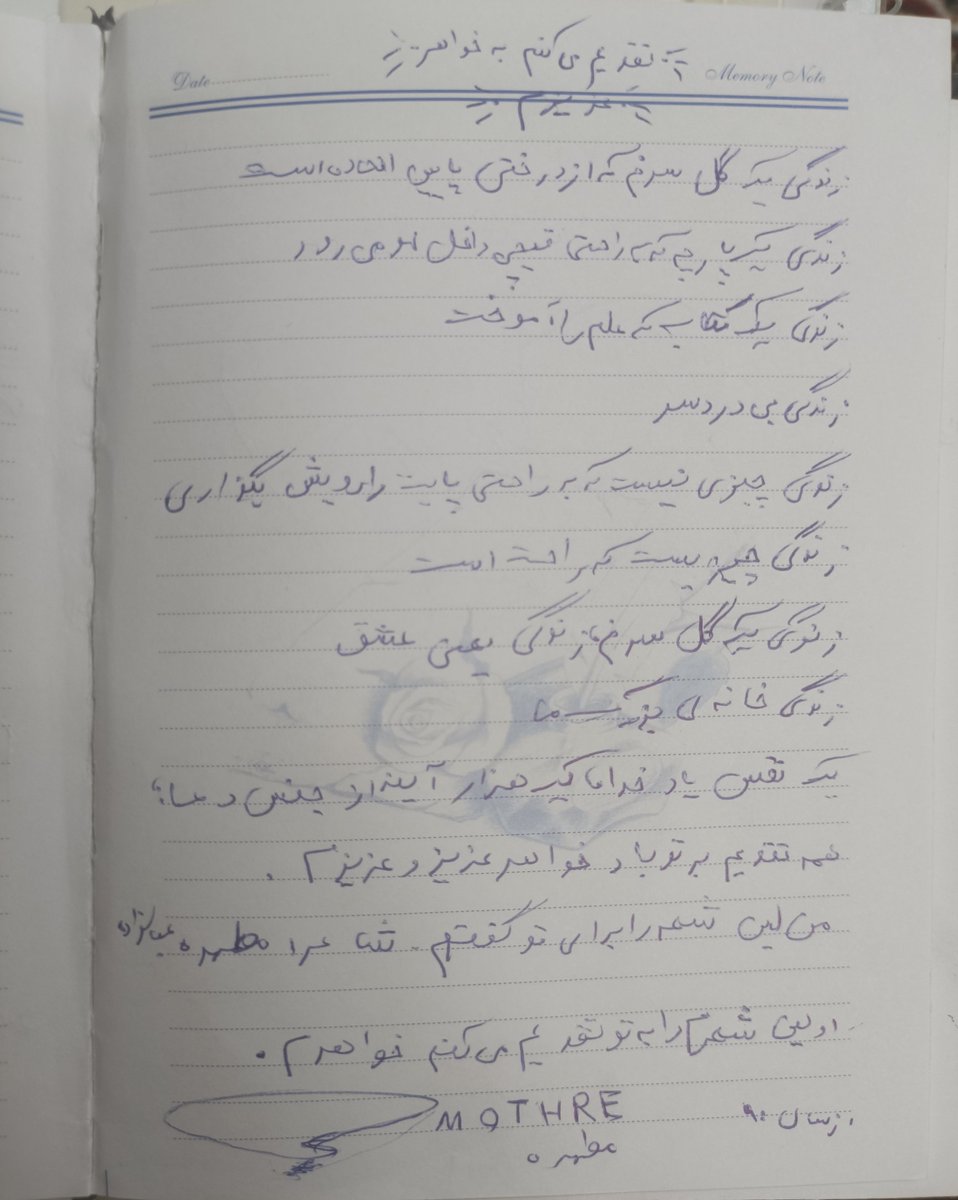 تقدیم می کنم به خواهر
Date Memory Note
عزیزم
زندگی یک گل سرخ که از درختی پایین افتاده است
زندگی یک پارچه که به راحتی قیچی داخل او می رود
زندگی یک کتابیه که علم را آموخت
زندگی بی دردسر
زندگی چیزی نیست که به راحتی پایت را رویش بگذاری
زندگی که راحت است
زندگی یک گل سرخ، زندگی یعنی عشق
زندگی خانه ی بزرگ ما
یک نفس یاد خدا هزار آینه از جنس دعا
همه تقدیم بر تو باد خواهر عزیز و عزیزم .
من این شعر را برای تو گفتم . شاعر مطهره
اولین شعرم را به تو تقدیم می کنم خواهرم .
از سال ۹۰ MOTHRE
مطهره